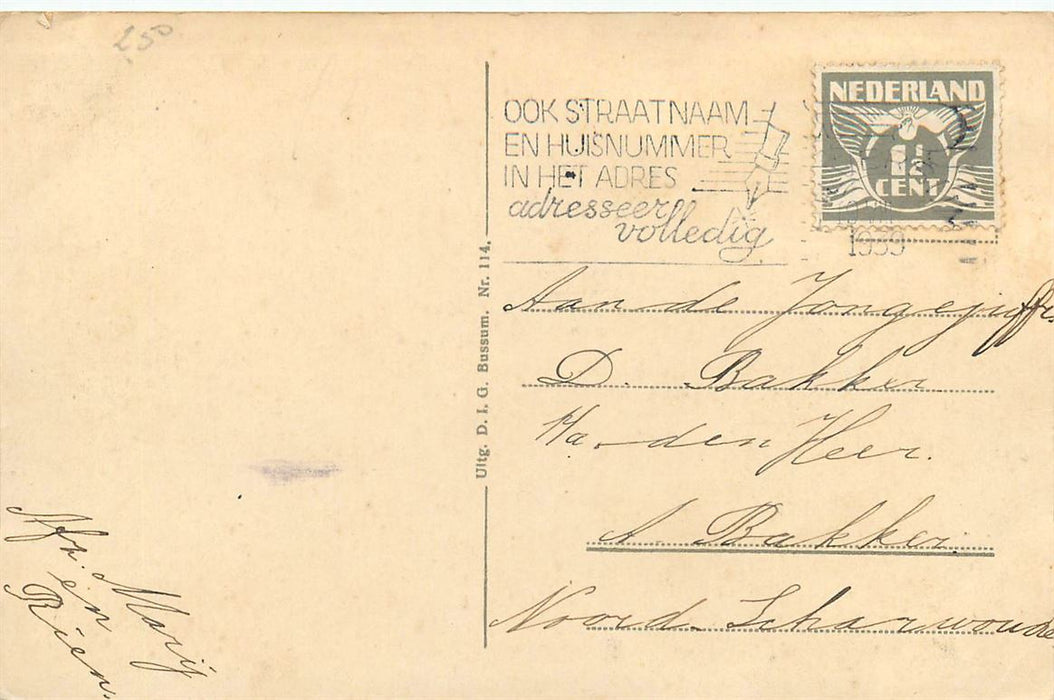 250
OOK STRAATNAAM
EN HUISNUMMER
IN HET ADRES
adresseer
volledig
NEDERLAND
1½
CENT
1939
Uitg. D. I. G. Bussum. Nr. 114.
Aan de Jongejuffr.
D. Bakker
den Heer.
A. Bakker.
Noord-Scharwoude
Afz. Marij
en
Rien.